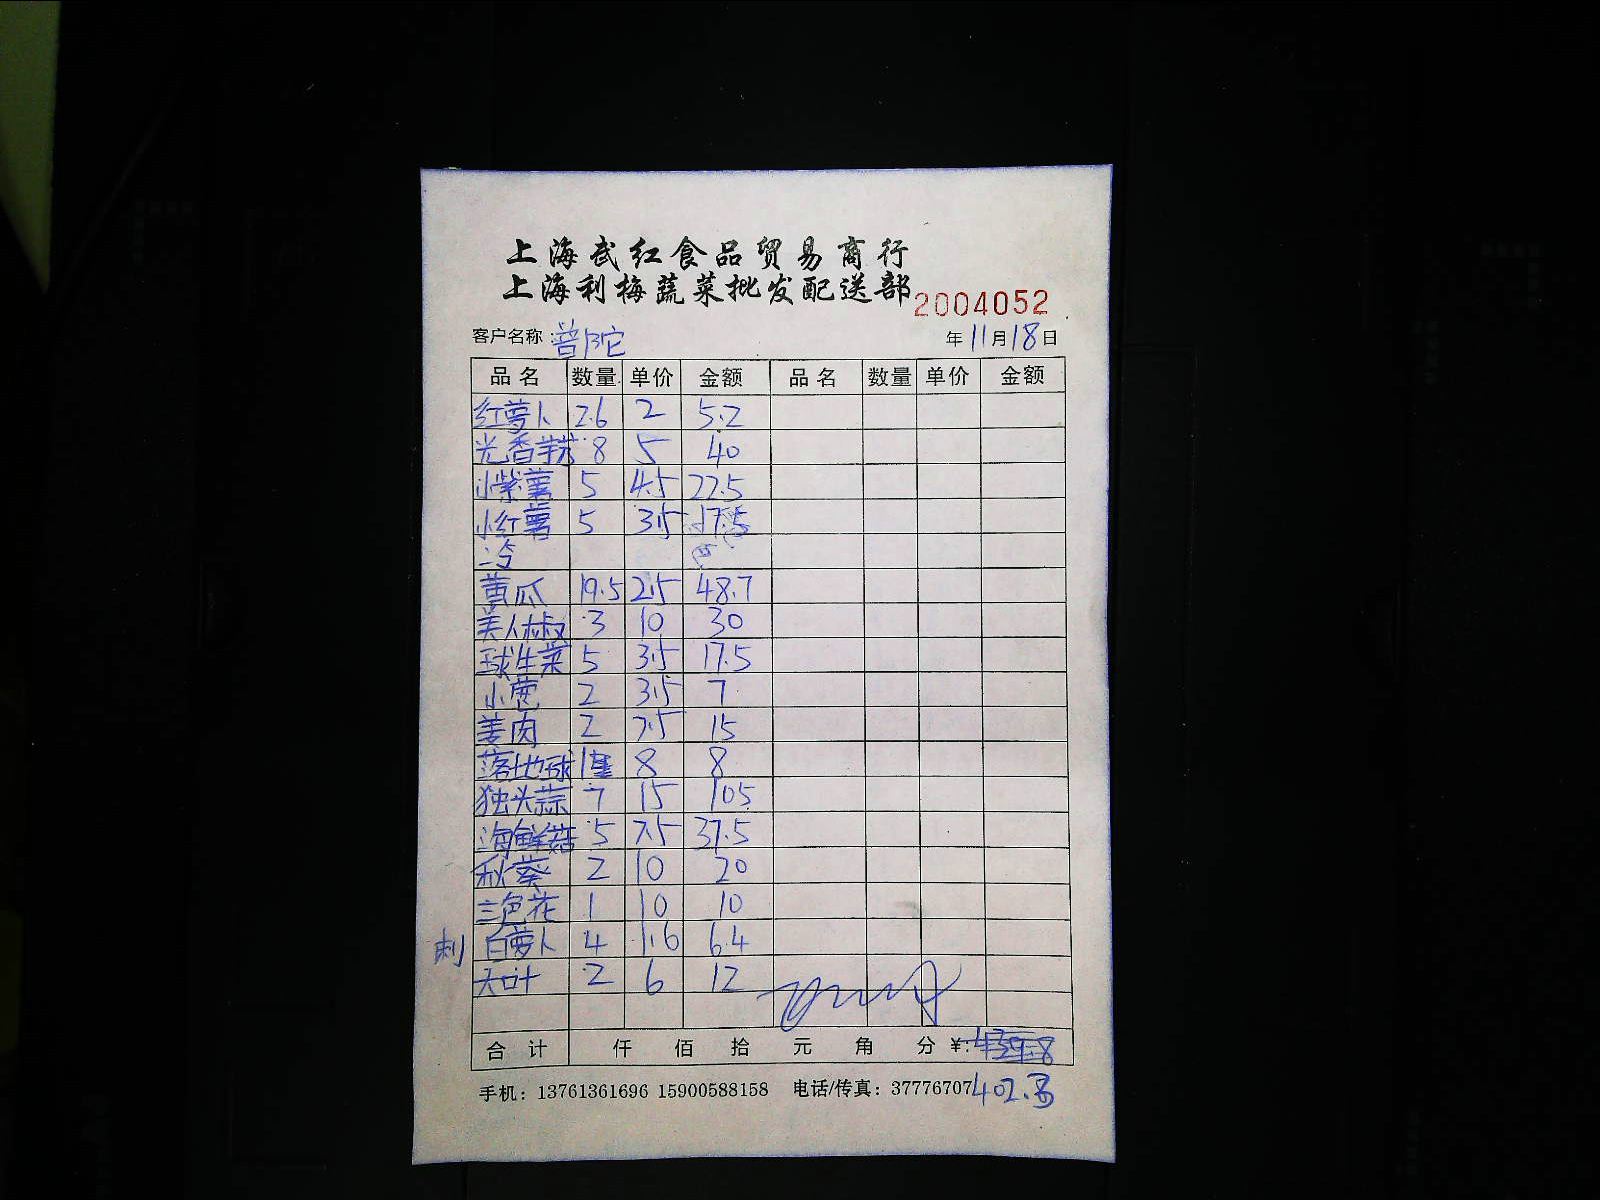 上海武红食品贸易商行
上海利梅蔬菜批发配送部 2004052
客户名称: 普陀 年 11 月 18 日
品名 数量 单价 金额 品名 数量 单价 金额
红萝卜 2.6 2 5.2
光香芋艿 8 5 40
小紫薯 5 4.5 22.5
小红薯 5 3.5 17.5
黄瓜 19.5 2.5 48.7
美人椒 3 10 30
球生菜 5 3.5 17.5
小葱 2 3.5 7
姜肉 2 7.5 15
落地球 1 8 8
独头蒜 7 15 105
海鲜菇 5 7.5 37.5
秋葵 2 10 20
三色花 1 10 10
刺 白萝卜 4 1.6 6.4
大叶 2 6 12
合计 仟 佰 拾 元 角 分 ¥: 439.8
手机: 13761361696 15900588158 电话/传真: 37776707 402.3